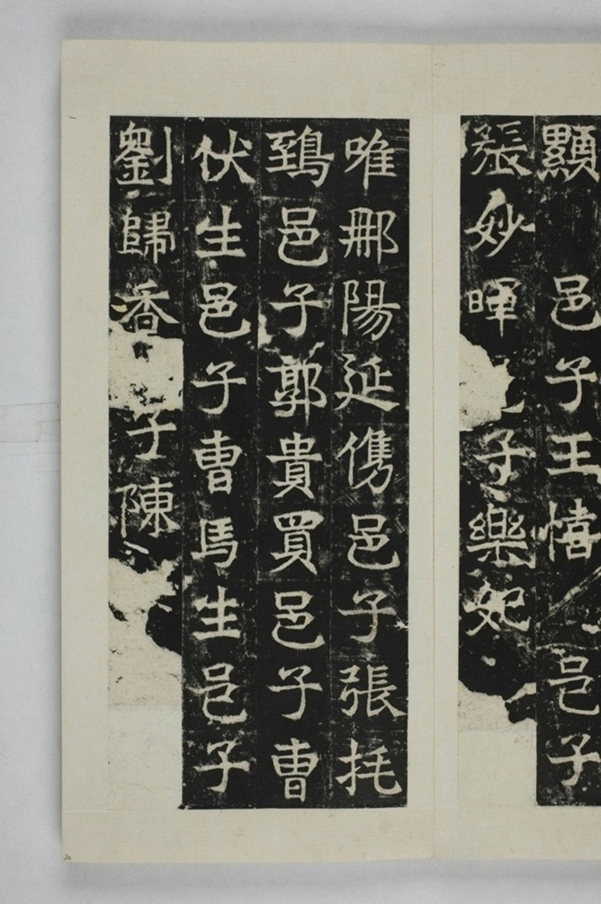 顯邑子王憘邑子
張妙暉子樂妃
唯那陽延儁邑子張托
鵄邑子郭貴買邑子曹
伏生邑子曹馬生邑子
劉歸香子陳